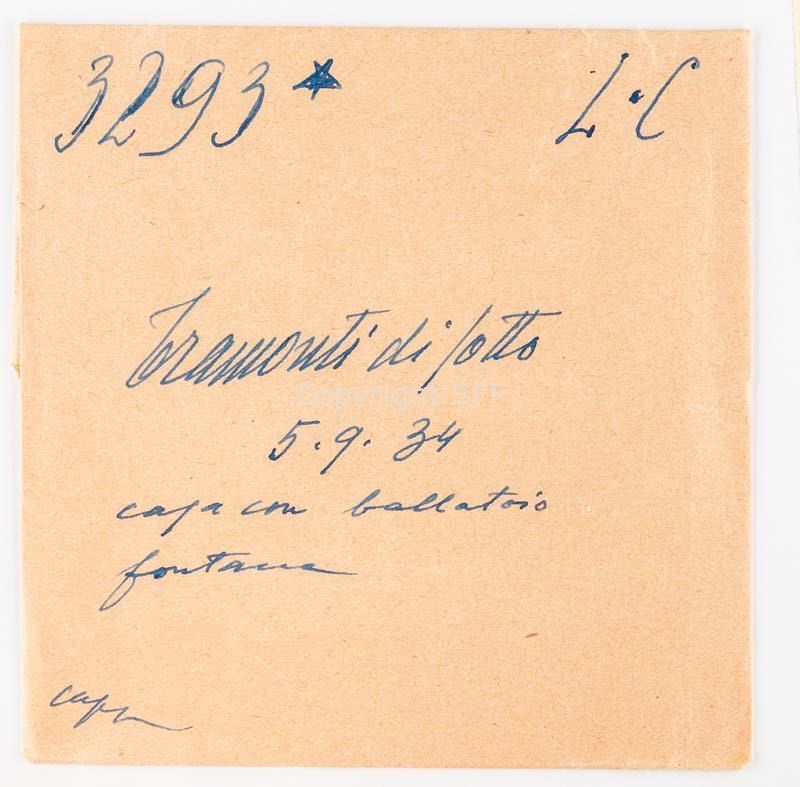 3293 * L.C
Tramonti di sotto
Copyright SFF
5.9.34
casa con ballatoio
fontana